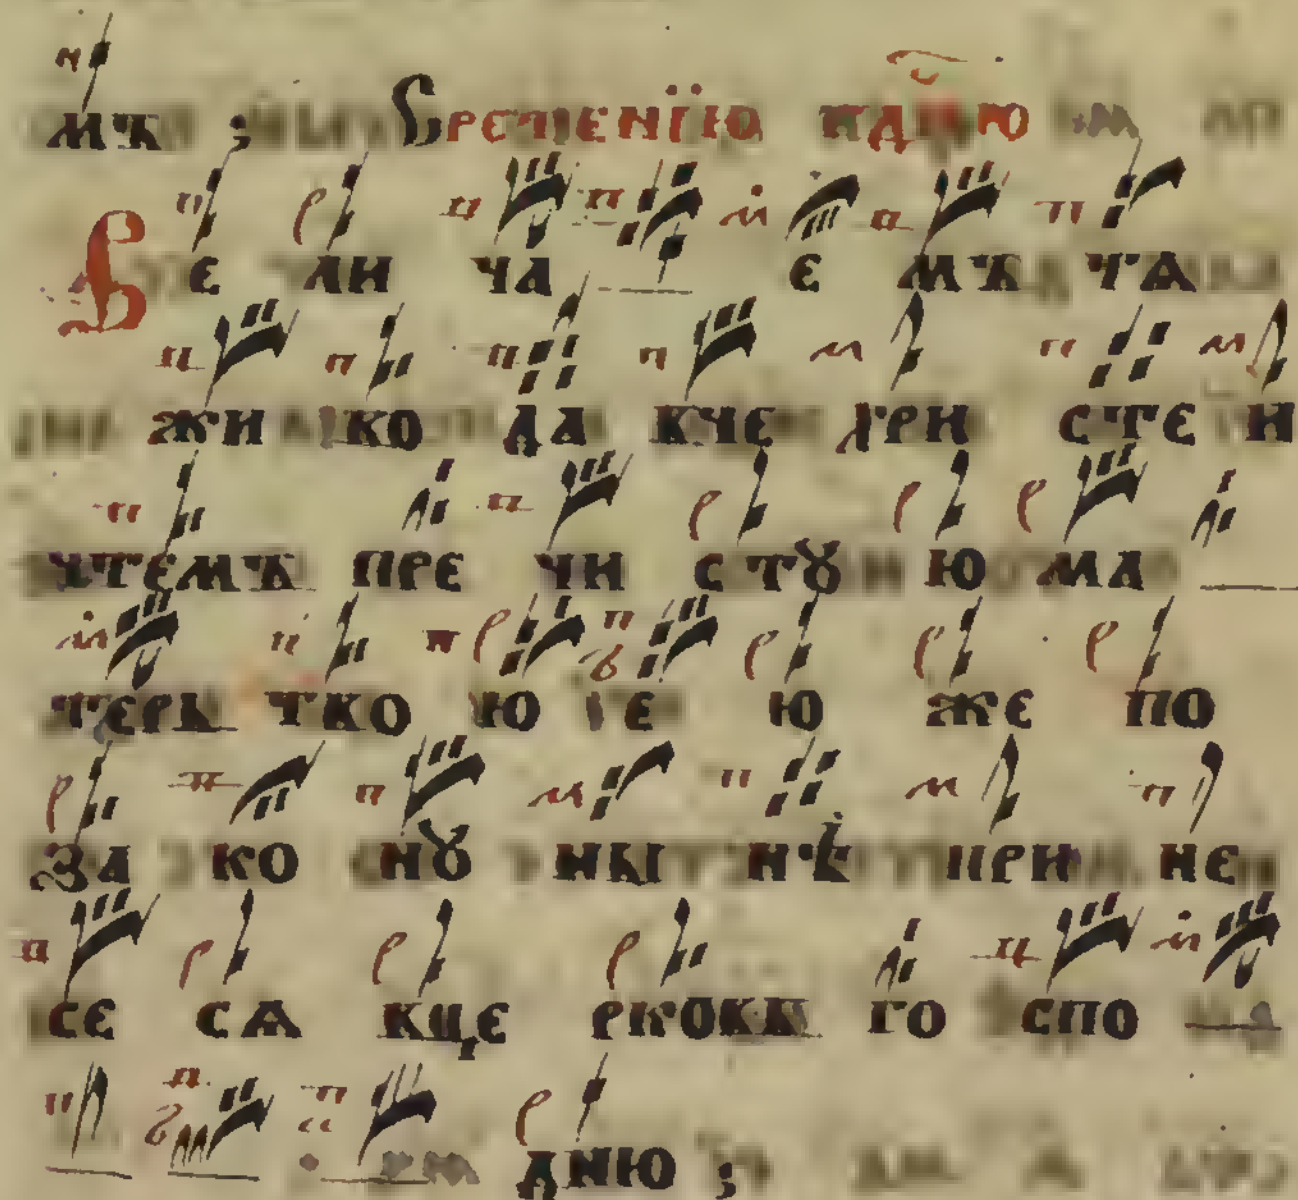 мъ ;  Срѣтенїю гдню
Ве ли ча е мъ тѧ
жи вко да вче хри сте и
чтемъ пре чи стꙋ ю ма
терь тво ю е ю же по
за ко нꙋ ны нѣ при не
се сѧ вце рковь го спо
дню ;